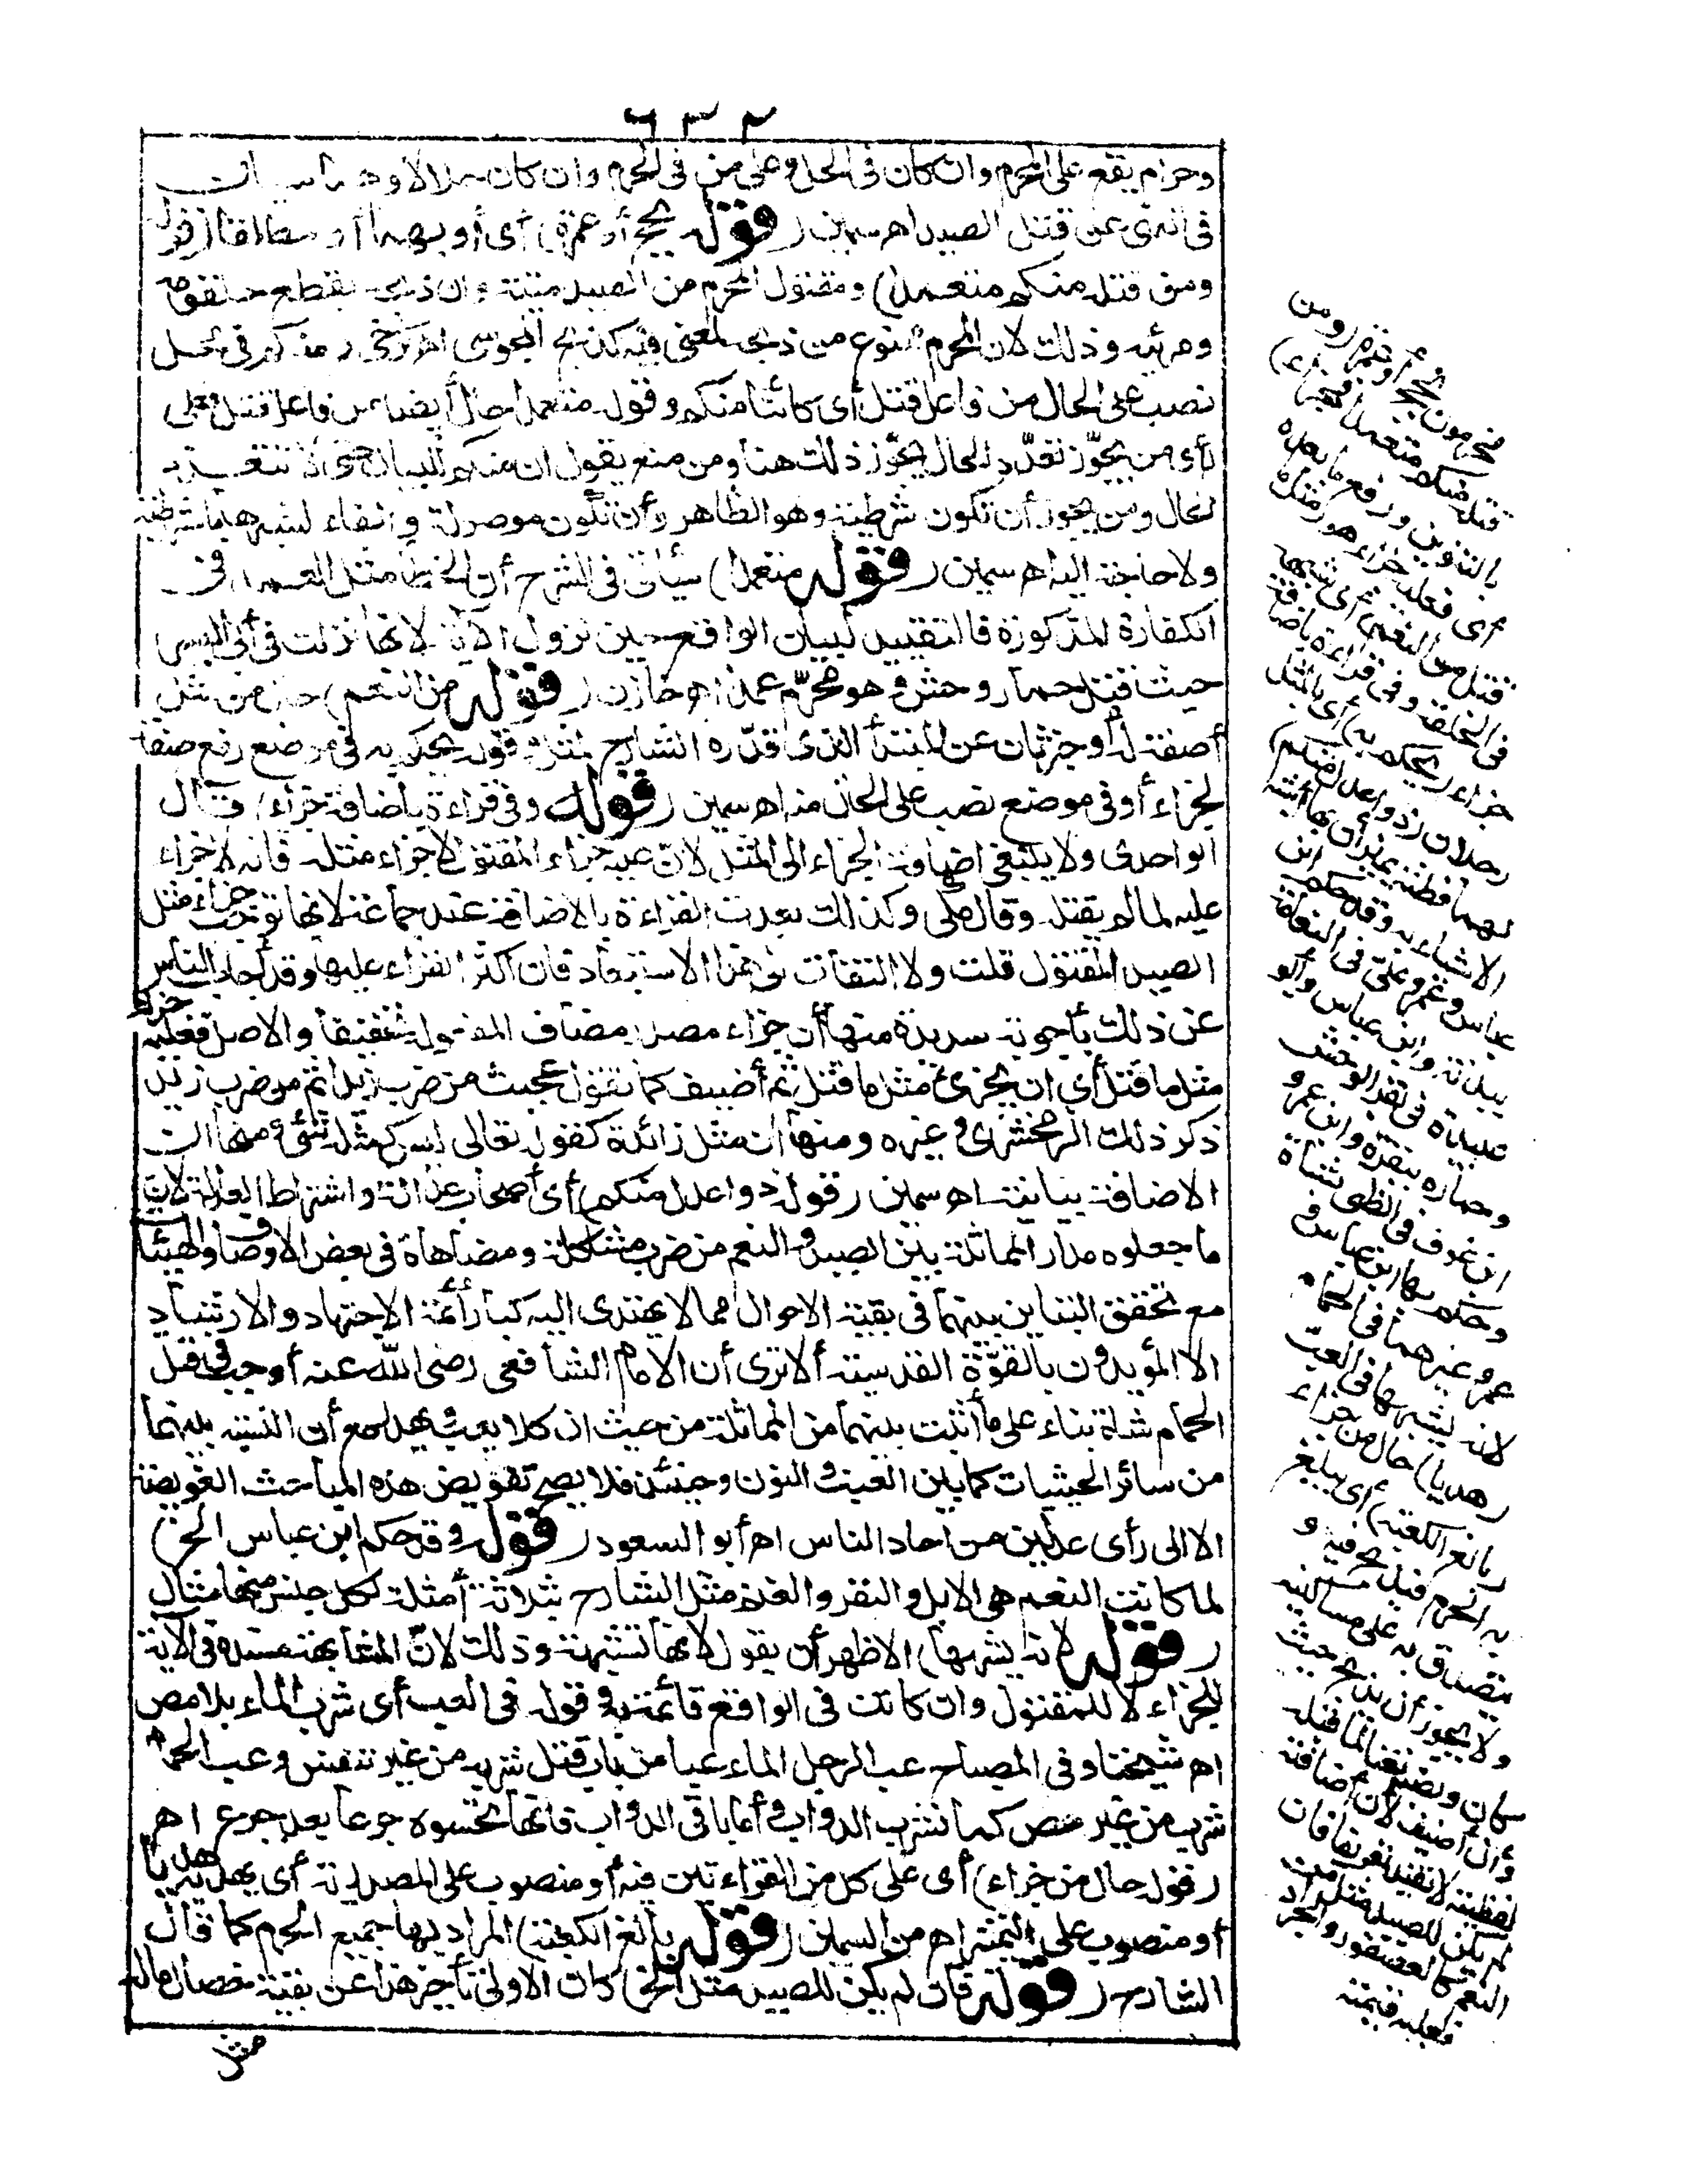 ٦٣٢
وحرام يقع على المحرم وان كان فى الحل وعلى من فى الحرم وان كان حلالا وهما سيان
فى النهى عن قتل الصيد اهـ سمين (قوله بحج أو عمرة) أى أو بهما أو مطلقا (قوله
ومن قتله منكم متعمدا) ومقتول المحرم من الصيد ميتة وان ذبح بقطع حلقومه
ومريئه وذلك لان المحرم ممنوع من ذبحه لمعنى فيه كذبح المجوسى اهـ كرخى ومنكم فى محل
نصب على الحال من فاعل قتل أى كائنا منكم وقوله متعمدا حال أيضا من فاعل قتل فعلى
رأى من يجوّز تعدّد الحال يجوّز ذلك هنا ومن منع يقول ان منكم للبيان حتى لا تتعدد
الحال ومن يجوز أن تكون شرطية وهو الظاهر وأن تكون موصولة والفاء لشبهها بالشرطية
ولا حاجة اليه اهـ سمين (قوله متعمدا) سيأتى فى الشرح أن الخطأ مثل العمد فى
الكفارة المذكورة فالتقييد لبيان الواقع حين نزول الآية لانها نزلت فى أبى اليسر
حيث قتل حمار وحش وهو محرم عمدا اهـ خازن (قوله من النعم) حال من مثل
أو صفة له أو خبر ثان عن المبتدأ الذى قدّره الشارح لمثل وقوله يحكم به فى موضع رفع صفة
لجزاء أو فى موضع نصب على الحال منه اهـ سمين (قوله وفى قراءة باضافة جزاء) قال
الواحدى ولا ينبغى اضافة الجزاء الى المثل لان عليه جزاء المقتول لا جزاء مثله فانه لا جزاء
عليه لما لم يقتله وقال مكى وكذلك بعدت القراءة بالاضافة عند جماعة لانها توجب جزاء مثل
الصيد المقتول قلت ولا التفات الى هذا الاستبعاد فان أكثر القراء عليها وقد أجاب الناس
عن ذلك بأجوبة سديدة منها أن جزاء مصدر مضاف لمفعوله تخفيفا والاصل فعليه جزاء
مثل ما قتل أى ان يجزئ مثل ما قتل ثم أضيف كما تقول عجبت من ضرب زيدا ثم من ضرب زيد
ذكر ذلك الزمخشرى وغيره ومنها أن مثل زائدة كقوله تعالى ليس كمثله شئ ومنها ان
الاضافة بيانية اهـ سمين (قوله ذوا عدل منكم) أى أصحاب عدالة واشتراط العدالة لان
ما جعلوه مدار المماثلة بين الصيد والنعم من ضرب مشاكلة ومضاهاة فى بعض الاوصاف والهيئات
مع تحقق التباين بينهما فى بقية الاحوال مما لا يهتدى اليه كبار أئمة الاجتهاد والارشاد
الا المؤيدون بالقوّة القدسية ألا ترى أن الامام الشافعى رضى الله عنه أوجب فى قتل
الحمام شاة بناء على ما أثبت بينهما من المماثلة من حيث ان كلا يعب ويهدر مع أن النسبة بينهما
من سائر الحيثيات كما بين الضب والنون وحينئذ فلا يصح تفويض هذه المباحث العويصة
الا الى رأى عدلين من آحاد الناس اهـ أبو السعود (قوله وقد حكم ابن عباس الخ)
لما كانت النعم هى الابل والبقر والغنم مثل الشارح بثلاثة أمثلة لكل جنس منها مثال
(قوله لانه يشبهها) الاظهر أن يقول لانها تشبهه وذلك لان المشابهة مسندة فى الآية
للجزاء لا للمقتول وان كانت فى الواقع قائمة به وقوله فى العب أى شرب الماء بلا مص
اهـ شيخنا وفى المصباح عب الرجل الماء عبا من باب قتل شربه من غير تنفس وعب الحمام
شرب من غير مص كما تشرب الدواب وأما باقى الدواب فانها تحسوه جرعا بعد جرع اهـ
(قوله حال من جزاء) أى على كل من القراءتين فيه أو منصوب على المصدرية أى يهديه هديا
أو منصوب على التمييز اهـ من السمين (قوله بالغ الكعبة) المراد بها جميع الحرم كما قال
الشارح (قوله فان لم يكن للصيد مثل الخ) كان الاولى تأخير هذا عن بقية خصال ماله
مثل
محرمون بحج أو عمرة (ومن
قتله منكم متعمدا فجزاء)
بالتنوين ورفع ما بعده
أى فعليه جزاء هو (مثل ما
قتل من النعم) أى شبهه
فى الخلقة وفى قراءة باضافة
جزاء (يحكم به) أى بالمثل
رجلان (ذوا عدل منكم)
لهما فطنة يميزان بها أشبه
الاشياء به وقد حكم ابن
عباس وعمر وعلىّ فى النعامة
ببدنة وابن عباس وأبو
عبيدة فى بقر الوحش
وحماره ببقرة وابن عمر و
ابن عوف فى الظبى بشاة
وحكم بها ابن عباس و
عمر وغيرهما فى الحمام
لانه يشبهها فى العبّ
(هديا) حال من جزاء
(بالغ الكعبة) أى يبلغ
به الحرم فيذبح فيه و
يتصدق به على مساكينه
ولا يجوز أن يذبح حيث
كان ونصبه نعتا لما قبله
وان أضيف لان اضافته
لفظية لا تفيد تعريفا فان
لم يكن للصيد مثل من
النعم كالعصفور والجراد
فعليه قيمته